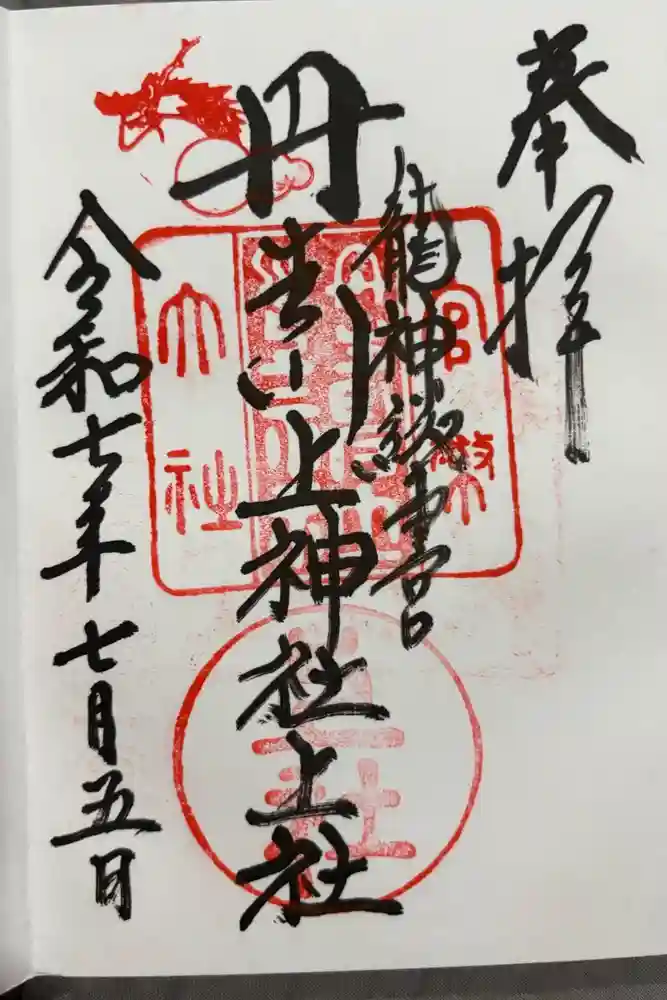 奉拝
龍神総本宮
丹生川上神社上社
令和七年七月五日
官幣
大社